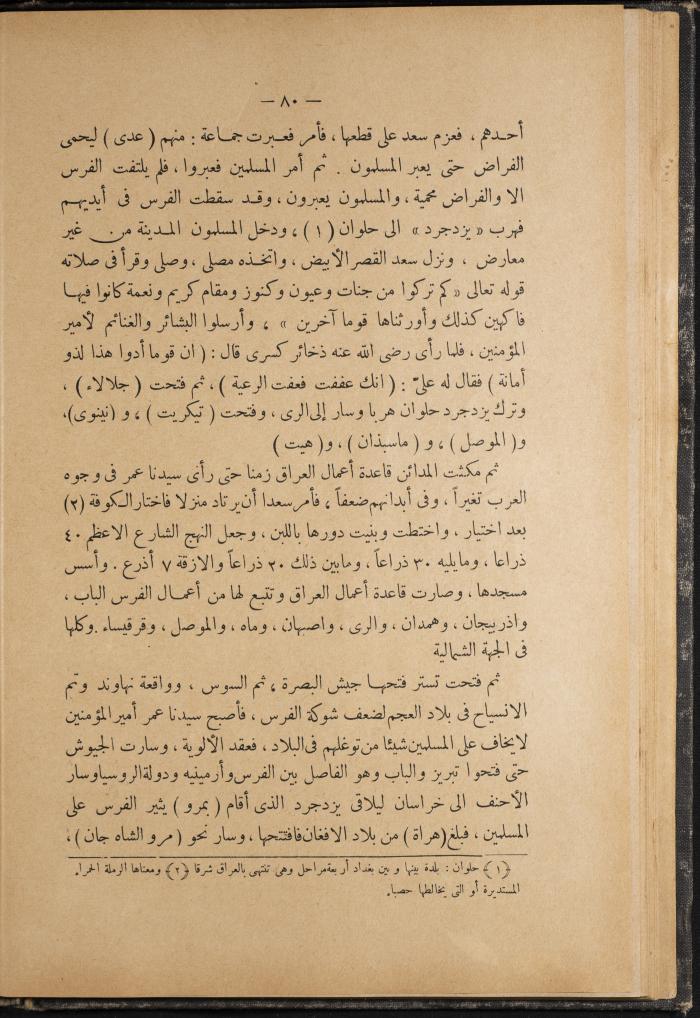 — ٨٠ —
أحدهم ، فعزم سعد على قطعها ، فأمر فعبرت جماعة : منهم ( عدى ) ليحمى
الفراض حتى يعبر المسلمون . ثم أمر المسلمين فعبروا ، فلم يلتفت الفرس
الا والفراض محمية ، والمسلمون يعبرون ، وقد سقطت الفرس فى أيديهم
فهرب « يزدجرد » الى حلوان ( ١ ) ، ودخل المسلمون المدينة من غير
معارض ، ونزل سعد القصر الأبيض ، واتخذه مصلى ، وصلى وقرأ فى صلاته
قوله تعالى « كم تركوا من جنات وعيون وكنوز ومقام كريم ونعمة كانوا فيها
فاكهين كذلك وأورثناها قوما آخرين » ، وأرسلوا البشائر والغنائم لأمير
المؤمنين ، فلما رأى رضى الله عنه ذخائر كسرى قال : ( ان قوما أدوا هذا لذو
أمانة ) فقال له علىّ : ( انك عففت فعفت الرعية ) ، ثم فتحت ( جلالاء ) ،
وترك يزدجرد حلوان هربا وسار إلى الرى ، وفتحت ( تيكريت ) ، و ( نينوى )،
و( الموصل ) ، و ( ماسبذان ) ، و( هيت )
ثم مكثت المدائن قاعدة أعمال العراق زمنا حتى رأى سيدنا عمر فى وجوه
العرب تغيراً ، وفى أبدانهم ضعفاً ، فأمر سعدا أن يرتاد منزلا فاختار الكوفة (٢)
بعد اختيار ، واختطت وبنيت دورها باللبن ، وجعل النهج الشارع الاعظم ٤٠
ذراعا ، ومايليه ٣٠ ذراعاً ، ومابين ذلك ٢٠ ذراعاً والازقة ٧ أذرع . وأسس
مسجدها ، وصارت قاعدة أعمال العراق وتتبع لها من أعمال الفرس الباب ،
واذربيجان ، وهمدان ، والرى ، واصبهان ، وماه ، والموصل ، وقرقيساء . وكلها
فى الجهة الشمالية
ثم فتحت تستر فتحها جيش البصرة ، ثم السوس ، وواقعة نهاوند وتم
الانسياح فى بلاد العجم لضعف شوكة الفرس ، فأصبح سيدنا عمر أمير المؤمنين
لايخاف على المسلمين شيئا من توغلهم فى البلاد ، فعقد الألوية ، وسارت الجيوش
حتى فتحوا تبريز والباب وهو الفاصل بين الفرس وأرمينيه ودولة الروسيا وسار
الأحنف الى خراسان ليلاقى يزدجرد الذى أقام ( بمرو ) يثير الفرس على
المسلمين ، فبلغ (هراة ) من بلاد الافغان فافتتحها ، وسار نحو ( مرو الشاه جان ) ،
( ١ ) حلوان : بلدة بينها وبين بغداد أربعة مراحل وهى تنتهى بالعراق شرقا ( ٢ ) ومعناها الرملة الحمرا،
المستديرة أو التى يخالطها حصبا.